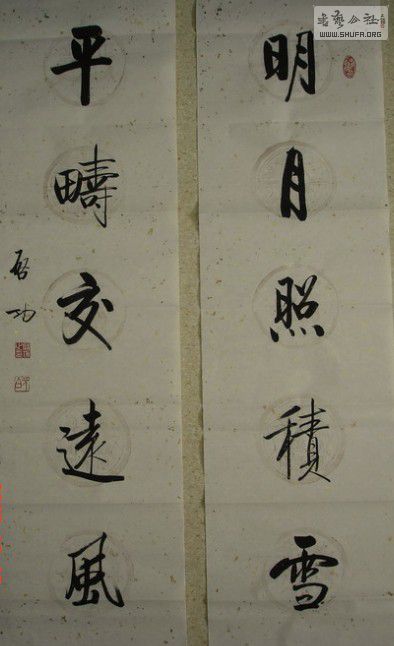 明月照積雪
平疇交遠風
啓功
書藝公社
WWW.SHUFA.ORG